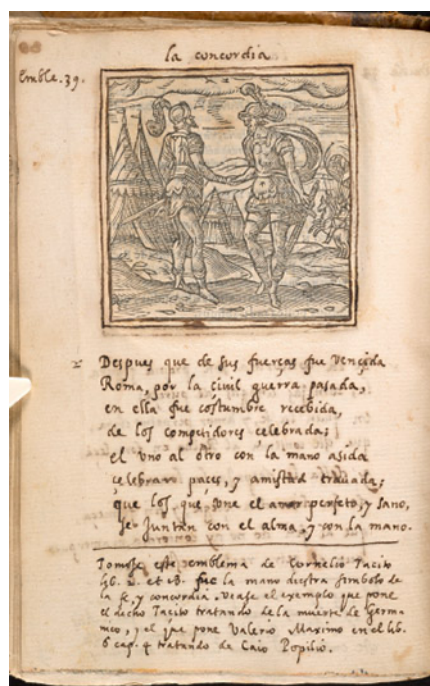 la concordia
Emble. 39.
Despues que de sus fuerças fue vencida
Roma, por la civil guerra pasada,
en ella fue costumbre recebida,
de los competidores celebrada;
el uno al otro con la mano asida
celebrar paces, y amistad travada;
que los que vne el amor perfeto, y sano,
se juntan con el alma, y con la mano.
Tomose este emblema de Cornelio Tacito
lib. 2. et 18. fue la mano diestra simbolo de
la fe, y concordia. Vease el exemplo que pone
el dicho Tacito tratando de la muerte de Germa
nico, y el que pone Valerio Maximo en el lib.
6 cap. 4 tratando de Caio Popilio.